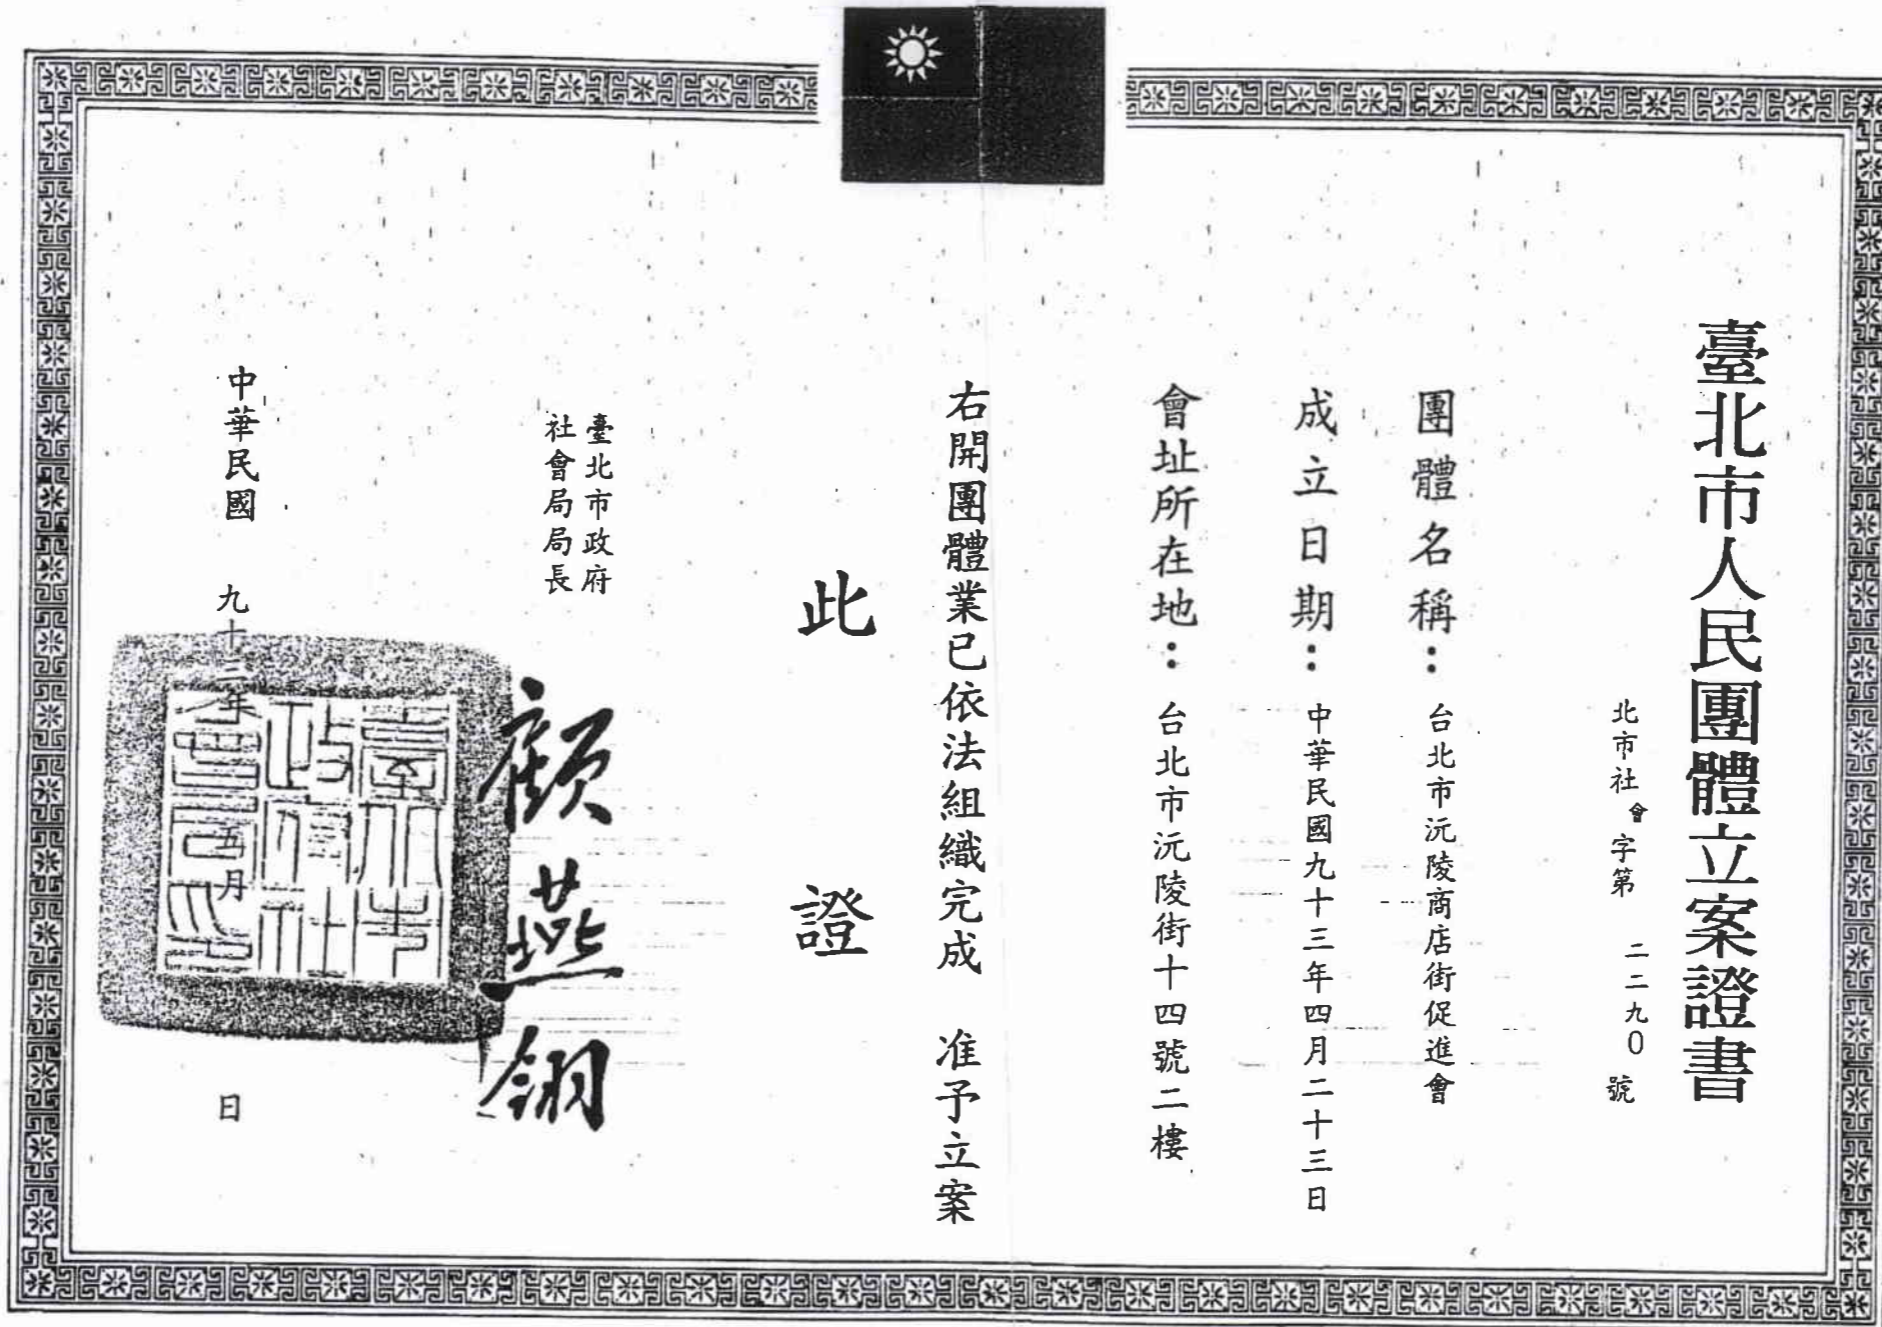 臺北市人民團體立案證書
北市社會字第 二二九0 號
團體名稱：台北市沅陵商店街促進會
成立日期：中華民國九十三年四月二十三日
會址所在地：台北市沅陵街十四號二樓
右開團體業已依法組織完成 准予立案
此 證
臺北市政府
社會局局長
顧燕翎
中華民國 九十三年 五月 日
臺北市
政府社
會局印